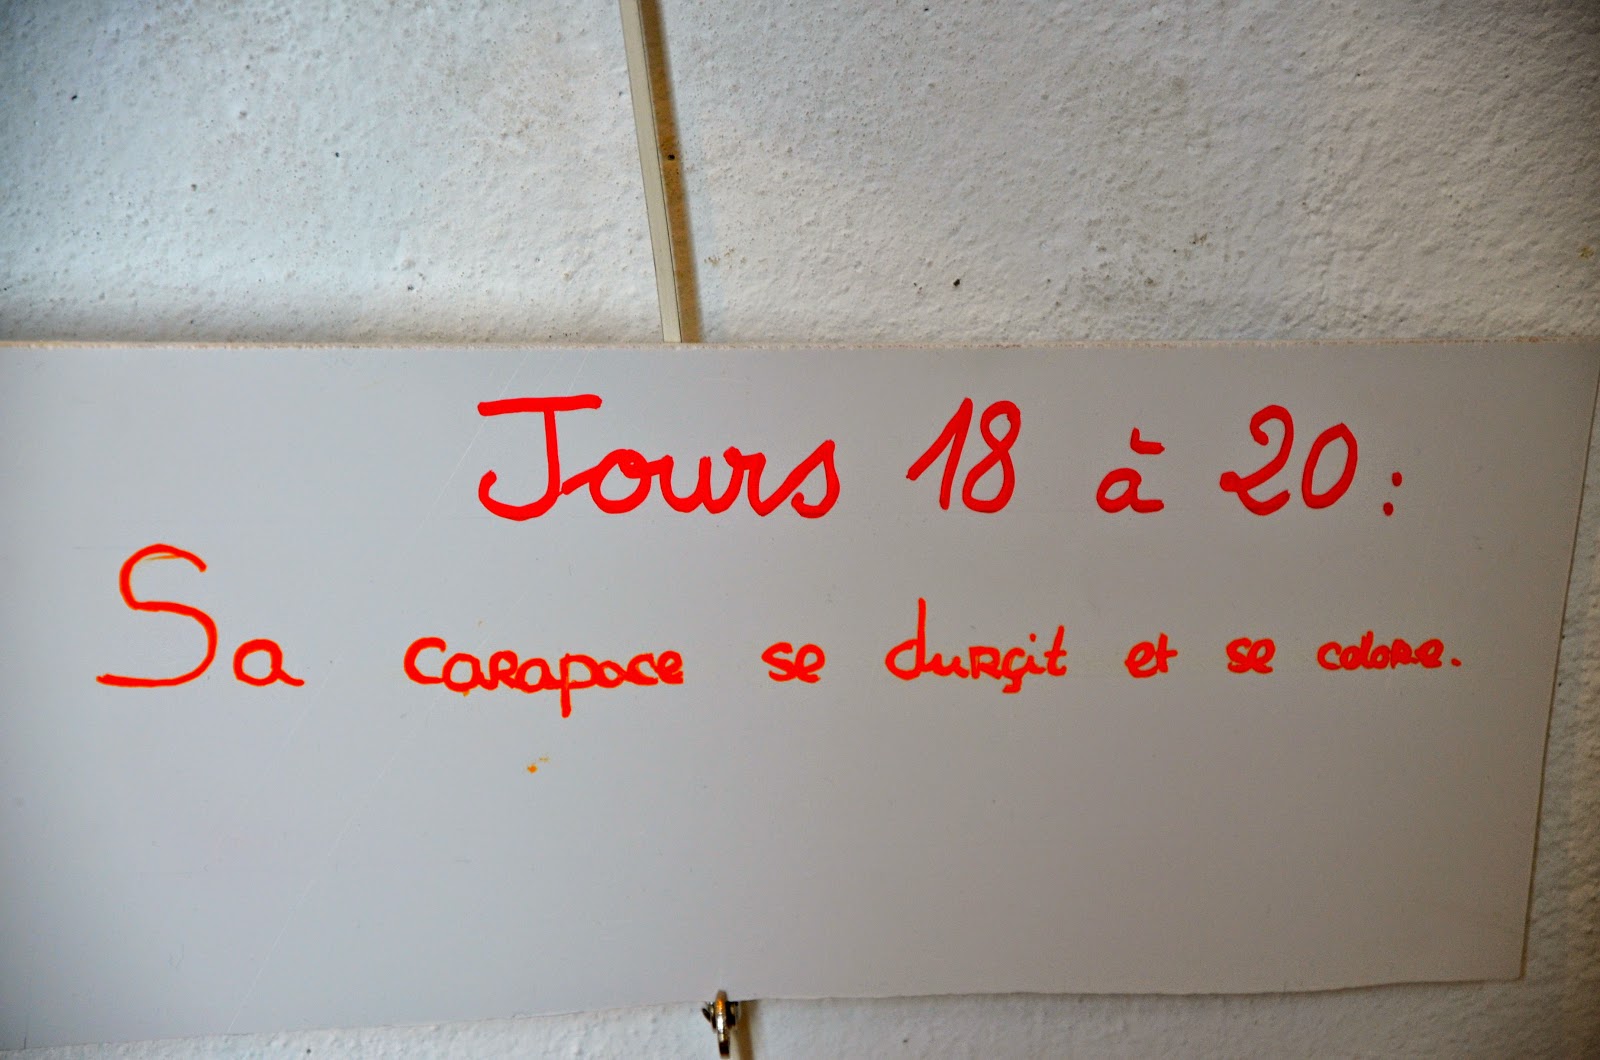 Jours 18 à 20 :
Sa carapace se durçit et se colore.